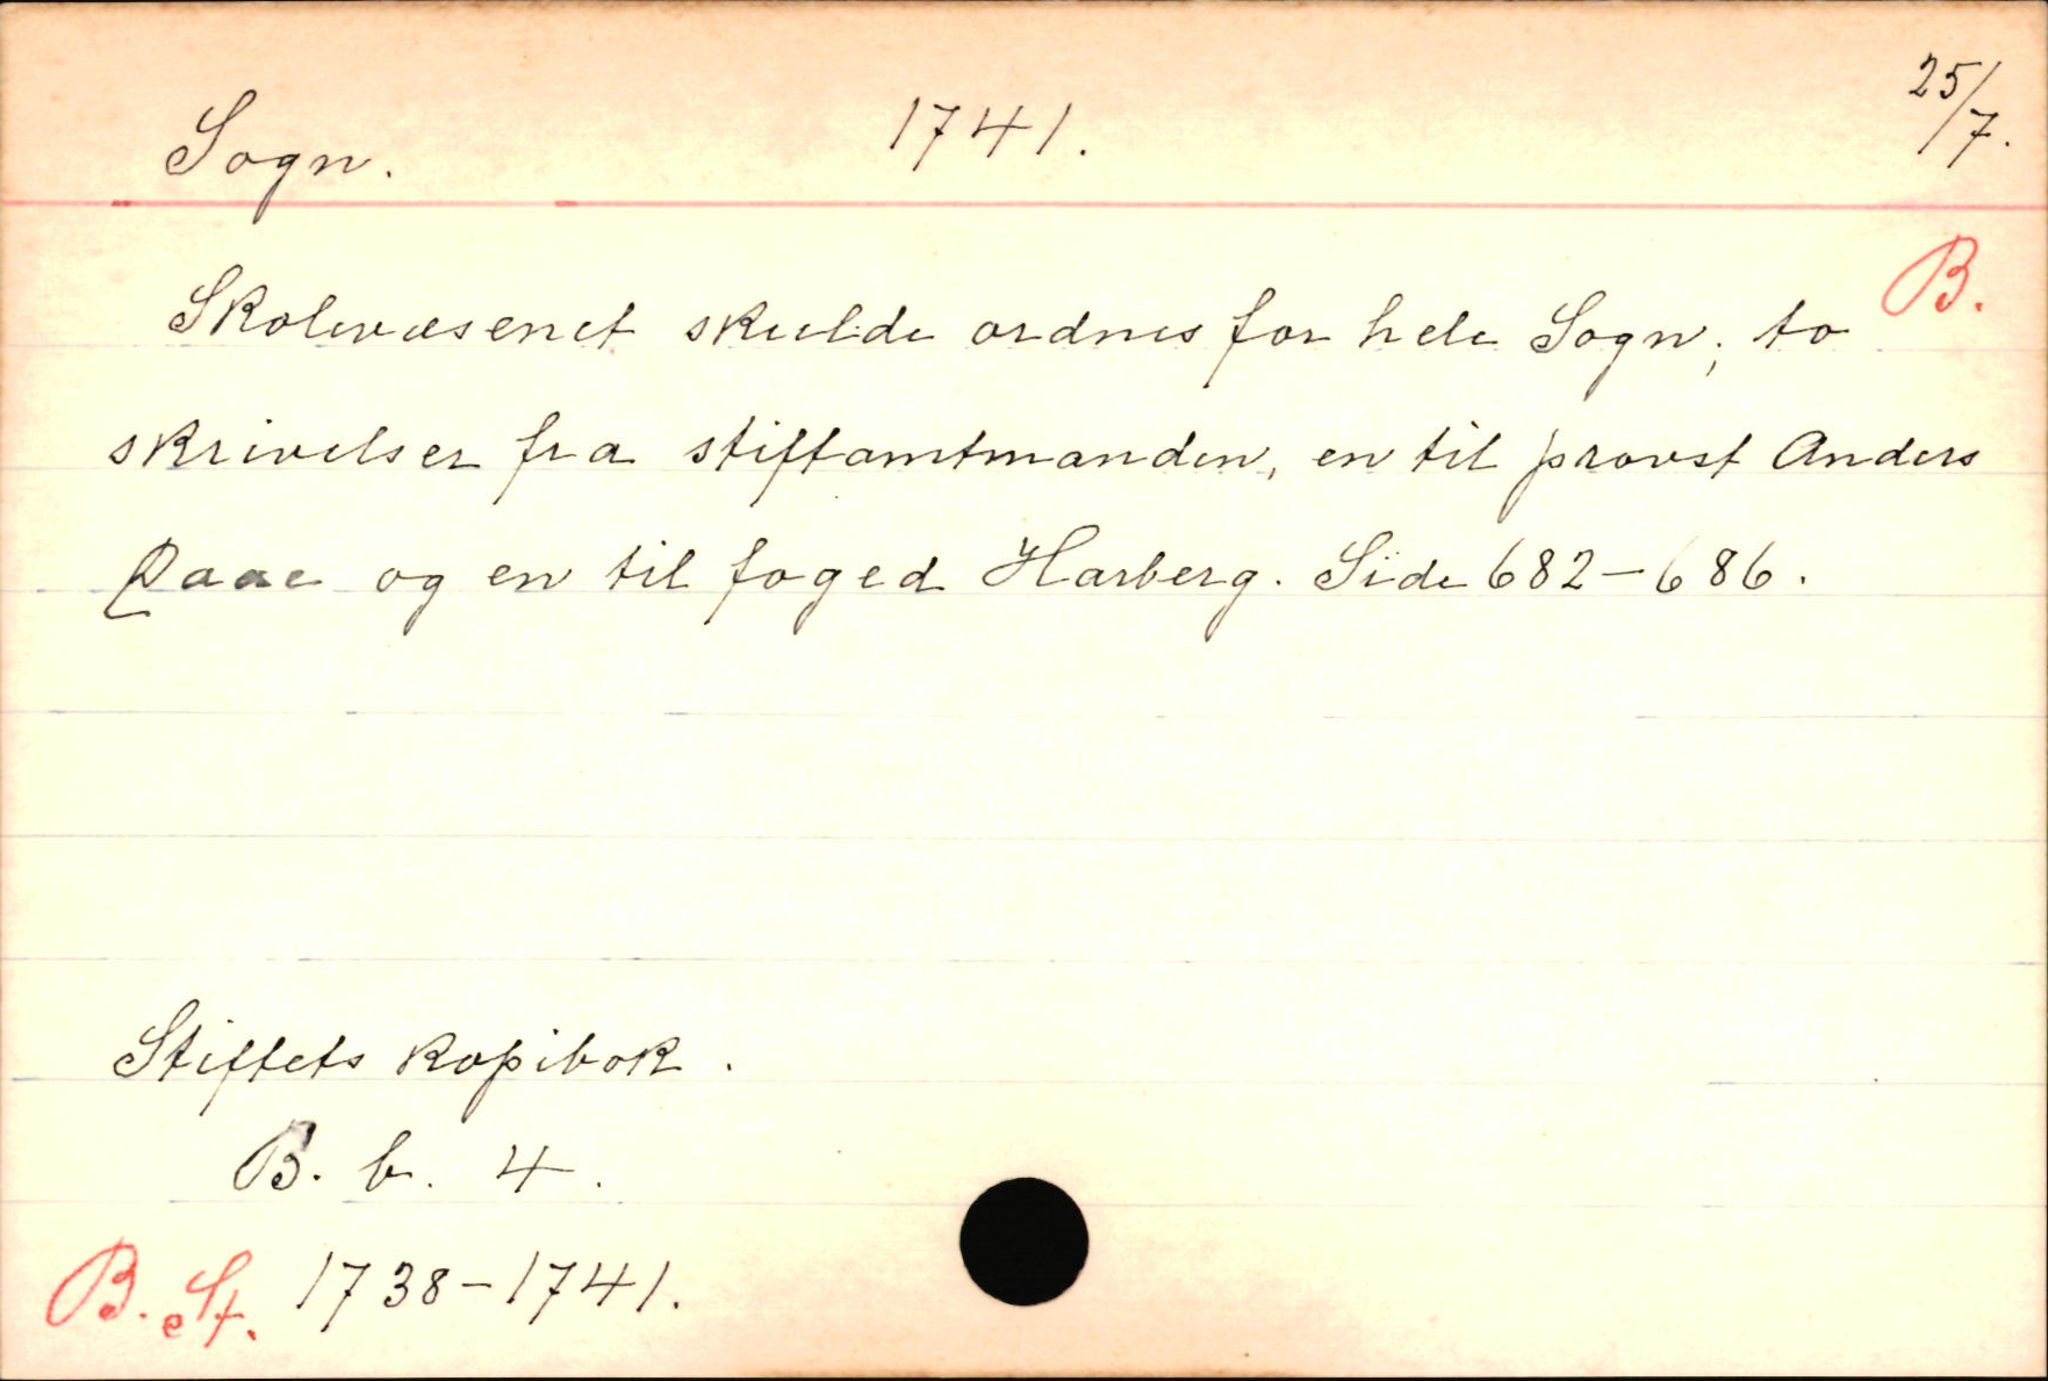 Sogn. 1741. 25/7.
B.
Skolevæsenet skulde ordnes for hele Sogn; to
skrivelser fra stiftamtmanden, en til provst Anders
Daae og en til foged Harberg. Side 682-686.
Stiftets kopibok.
B. b. 4.
B. St. 1738-1741.